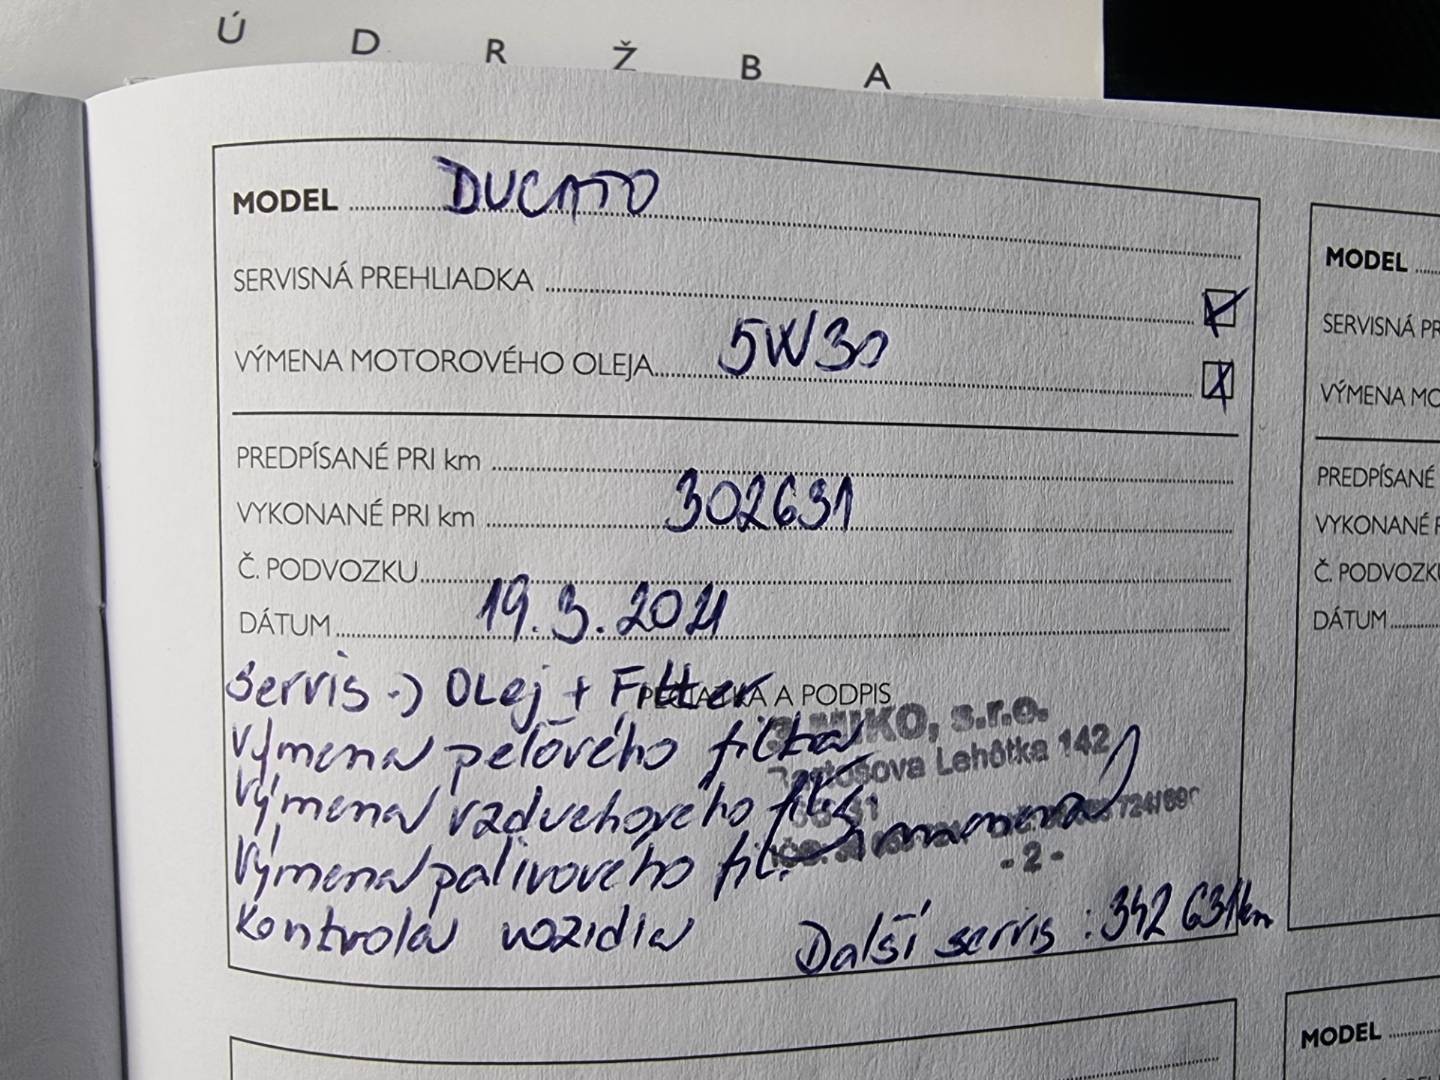 ÚDRŽBA
MODEL DUCATO
SERVISNÁ PREHLIADKA
VÝMENA MOTOROVÉHO OLEJA 5W30
PREDPÍSANÉ PRI km
VYKONANÉ PRI km 302631
Č. PODVOZKU
DÁTUM 19.3.2021
PEČIATKA A PODPIS
Servis -) OLej + Filter
Výmena peľového filtra
Výmena vzduchového
Výmena palivového
Kontrola vozidla
MIKO, s.r.o.
Lehôtka 142
- 2 -
Další servis : 342 631km
MODEL
SERVISNÁ PR
VÝMENA MO
PREDPÍSANÉ
VYKONANÉ P
Č. PODVOZKU
DÁTUM
MODEL